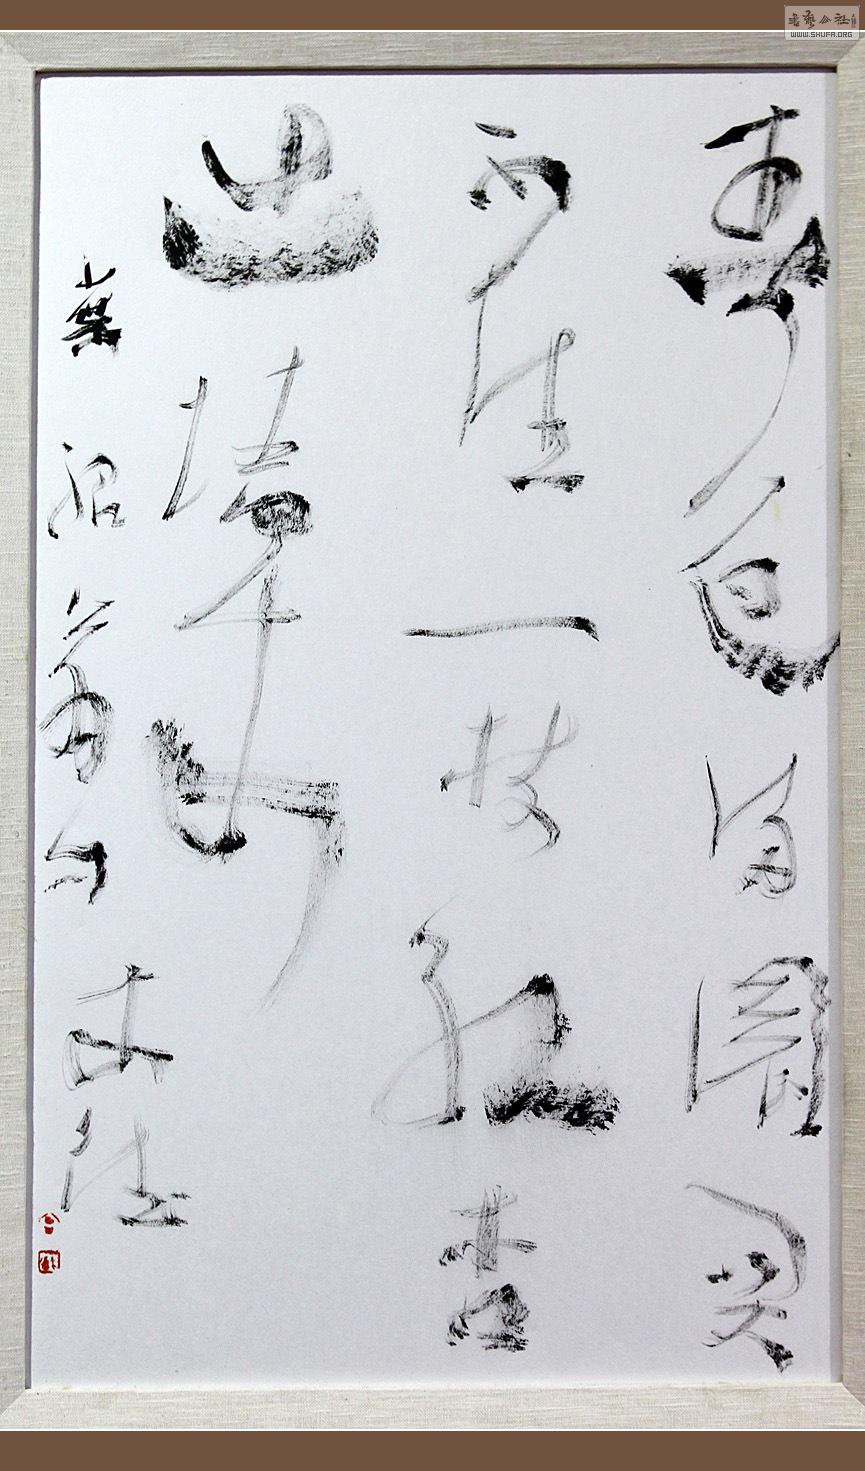 書藝公社
WWW.SHUFA.ORG
春色滿園関
不住一枝紅杏
出墻来
葉紹翁句